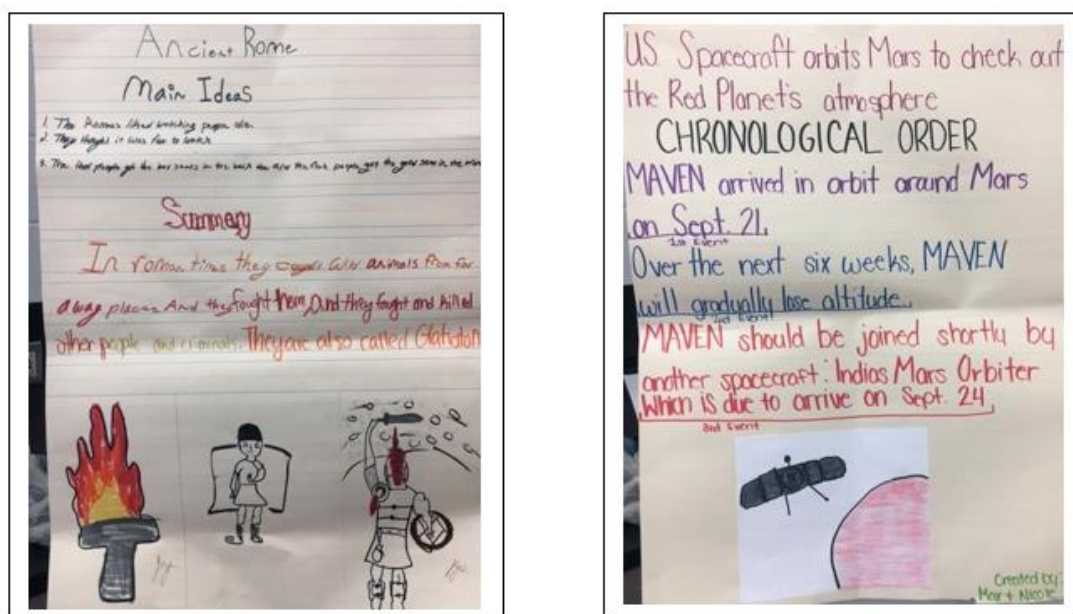 Ancient Rome
Main Ideas
1. The Romans liked watching people die.
2. They thought it was fun to watch
3. The people got the bad seats in the back the rich people got the good seats in the
Summary
In roman times they wild animals from far
away places And they fought them, and they fought and killed
other people and criminals. They are also called
U.S. Spacecraft orbits Mars to check out
the Red Planet's atmosphere
CHRONOLOGICAL ORDER
MAVEN arrived in orbit around Mars
on Sept. 21.
1st Event
Over the next six weeks, MAVEN
will gradually lose altitude.
2nd Event
MAVEN should be joined shortly by
another spacecraft: Indias Mars Orbiter
which is due to arrive on Sept. 24
3rd Event
Created by:
+ Nicole